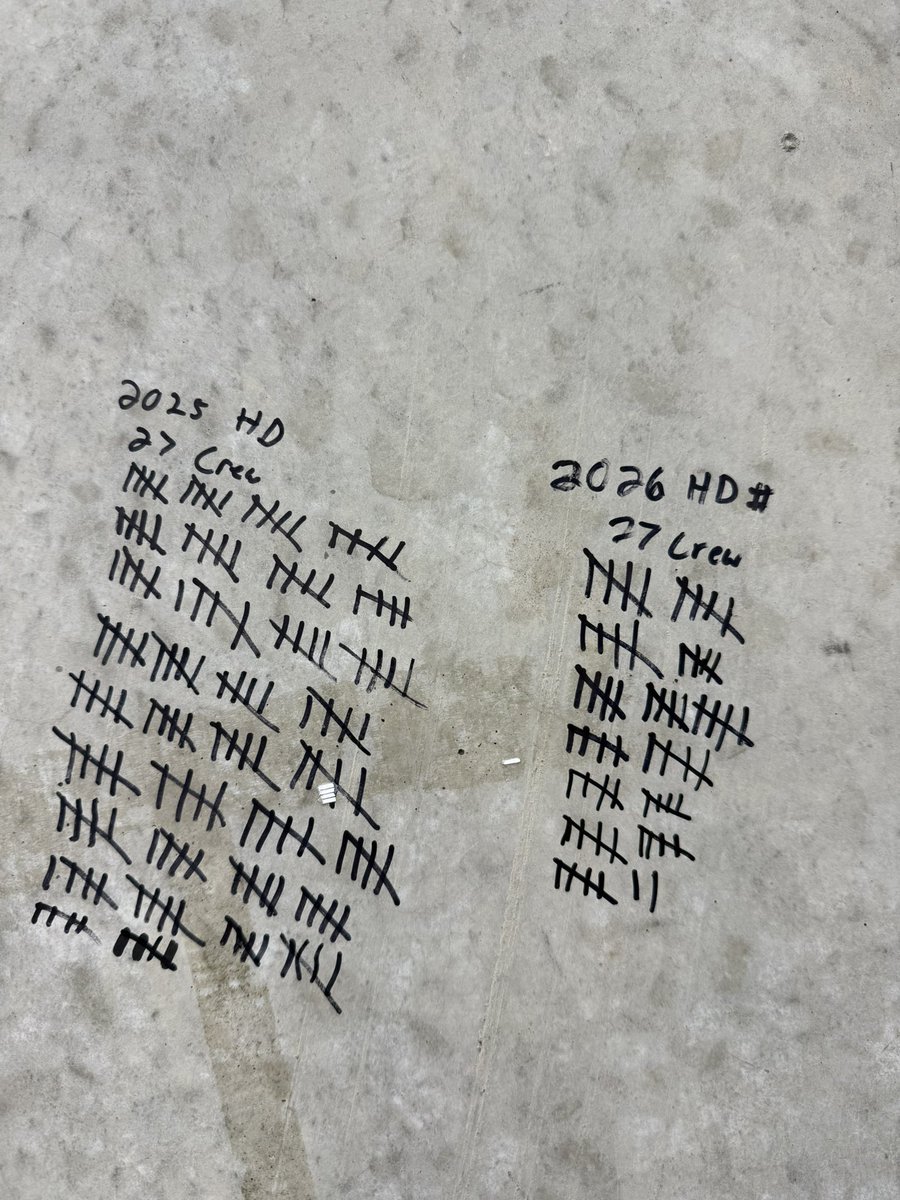 2025 HD
27 Crew
2026 HD #
27 Crew